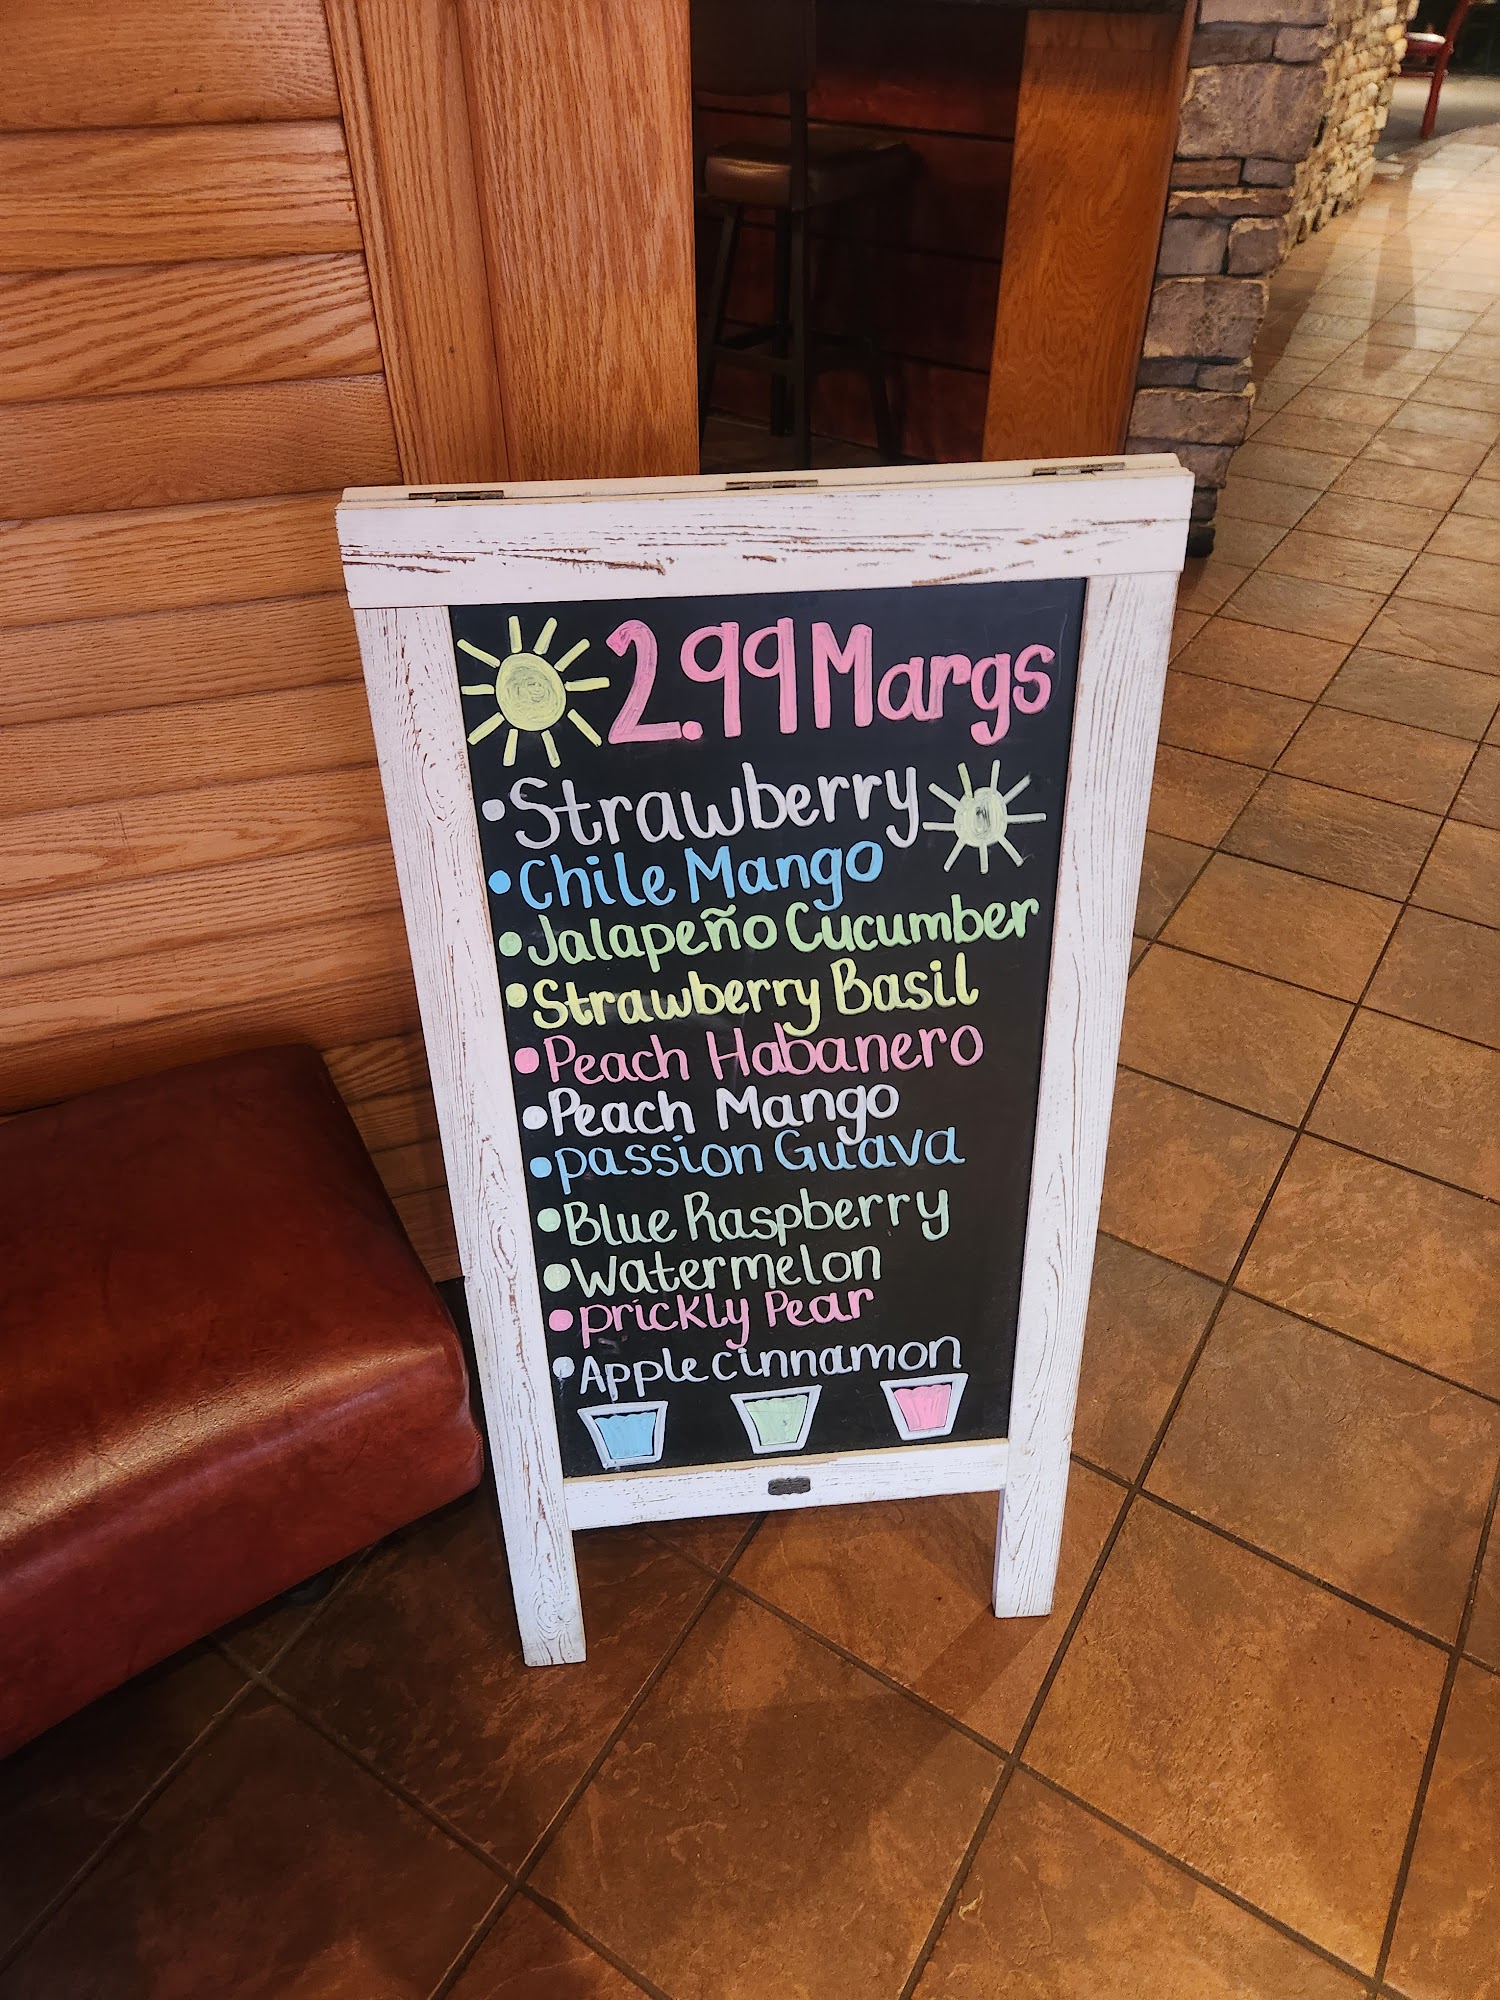 2.99 Margs
•Strawberry
•Chile Mango
•Jalapeño Cucumber
•Strawberry Basil
•Peach Habanero
•Peach Mango
•passion Guava
•Blue Raspberry
•Watermelon
•prickly Pear
•Apple cinnamon